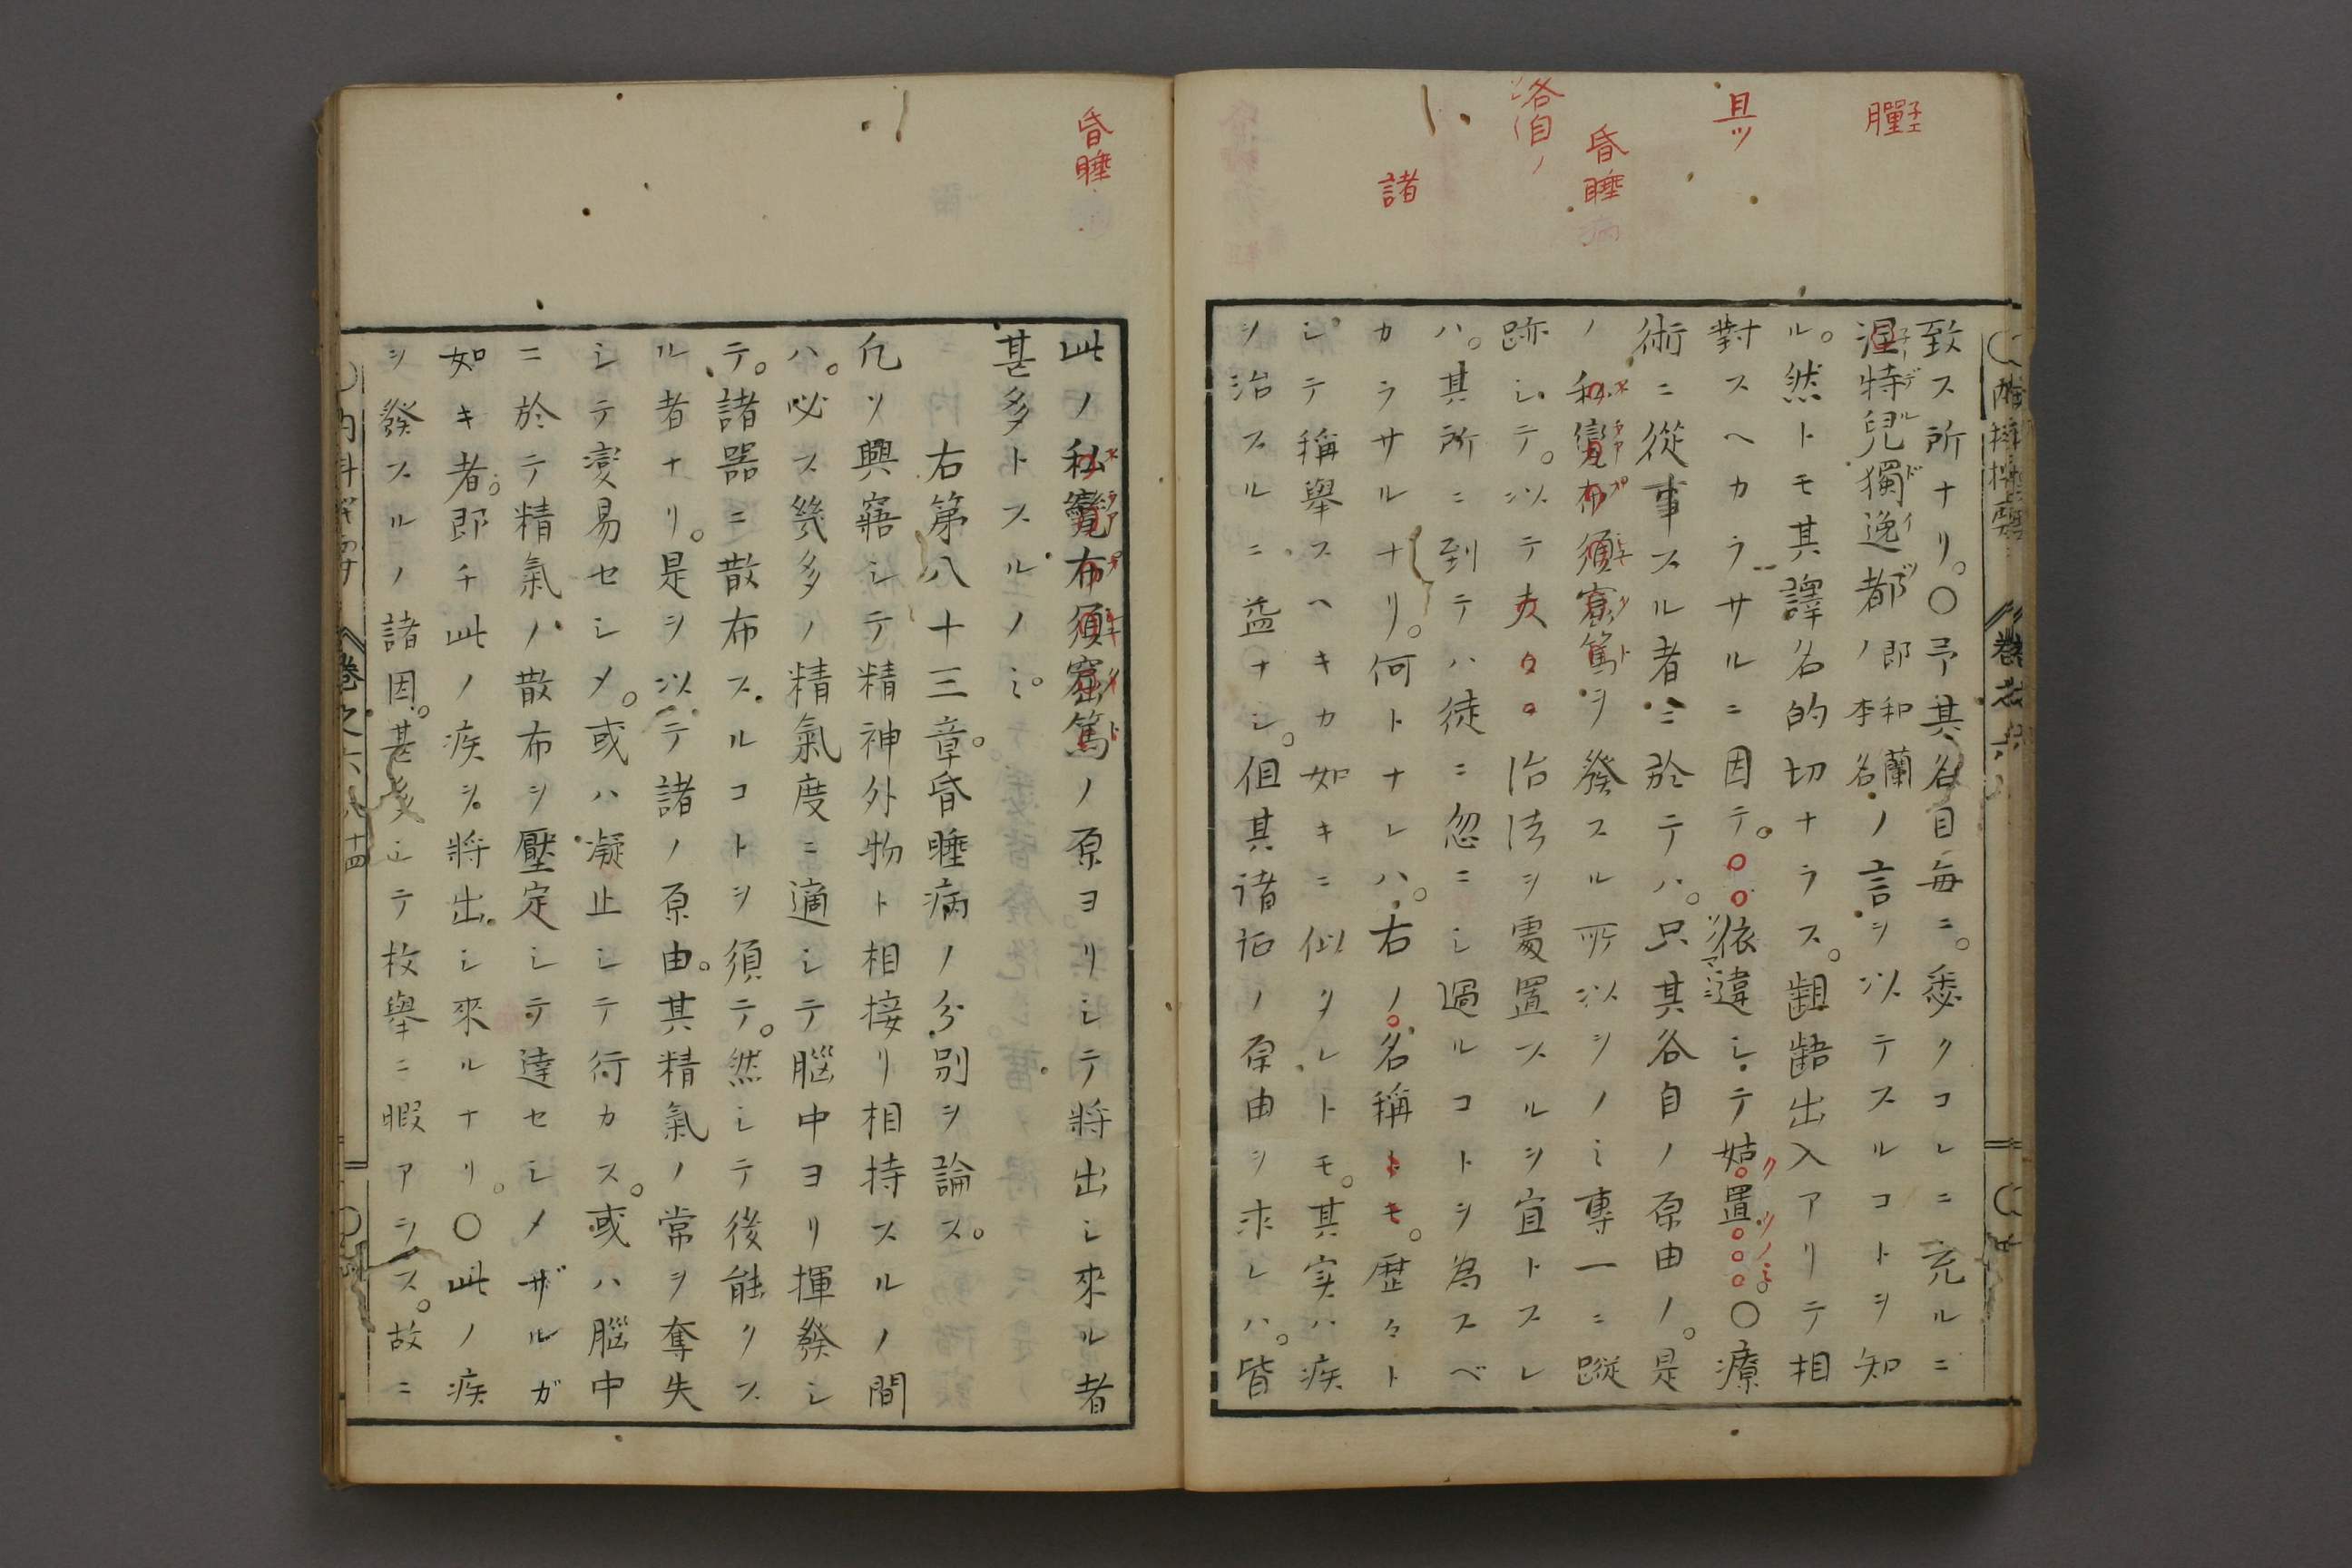 致ス所ナリ。〇予其名目毎ニ。悉クコレニ充ルニ
涅特兒獨逸都ノ郎和蘭本名ノ言ヲ以テスルコトヲ知
ル。然トモ其譯名的切ナラス。齟齬出入アリテ相
對スヘカラサルニ因テ。依違シテ姑置〇療
術ニ從事スル者ニ於テハ。只其各自ノ原由ノ。是
ノ私鑾布須窟篤ヲ發スル所以ヲノミ專一ニ蹤
跡シテ。以テ夫ノ治法ヲ處置スルヲ宜トスレ
ハ。其所ニ到テハ徒ニ忽ニシ過ルコトヲ為スベ
カラサルナリ。何トナレハ。右ノ名稱トモ。歴々ト
シテ稱舉スヘキカ如キニ似タレトモ。其実ハ疾
ヲ治スルニ益ナシ。但其諸証ノ原由ヲ求レハ。皆
此ノ私鑾布須窟篤ノ原ヨリシテ將出シ來ル者
甚多トスルノミ。
右第八十三章。昏睡病ノ分別ヲ論ス。
凡ソ興寤シテ精神外物ト相接リ相持スルノ間
ハ。必ス幾多ノ精氣度ニ適シテ腦中ヨリ揮發シ
テ。諸器ニ散布スルコトヲ須テ。然シテ後能クス
ル者ナリ。是ヲ以テ諸ノ原由。其精氣ノ常ヲ奪失
シテ変易セシメ。或ハ凝止シテ行カス。或ハ腦中
ニ於テ精氣ノ散布ヲ壓定シテ達セシメザルガ
如キ者。即チ此ノ疾ヲ將出シ來ルナリ。〇此ノ疾
ヲ發スルノ諸因。甚多シテ枚舉ニ暇アラス。故ニ
昏睡
諸
昏睡病
且ツ
卷之六